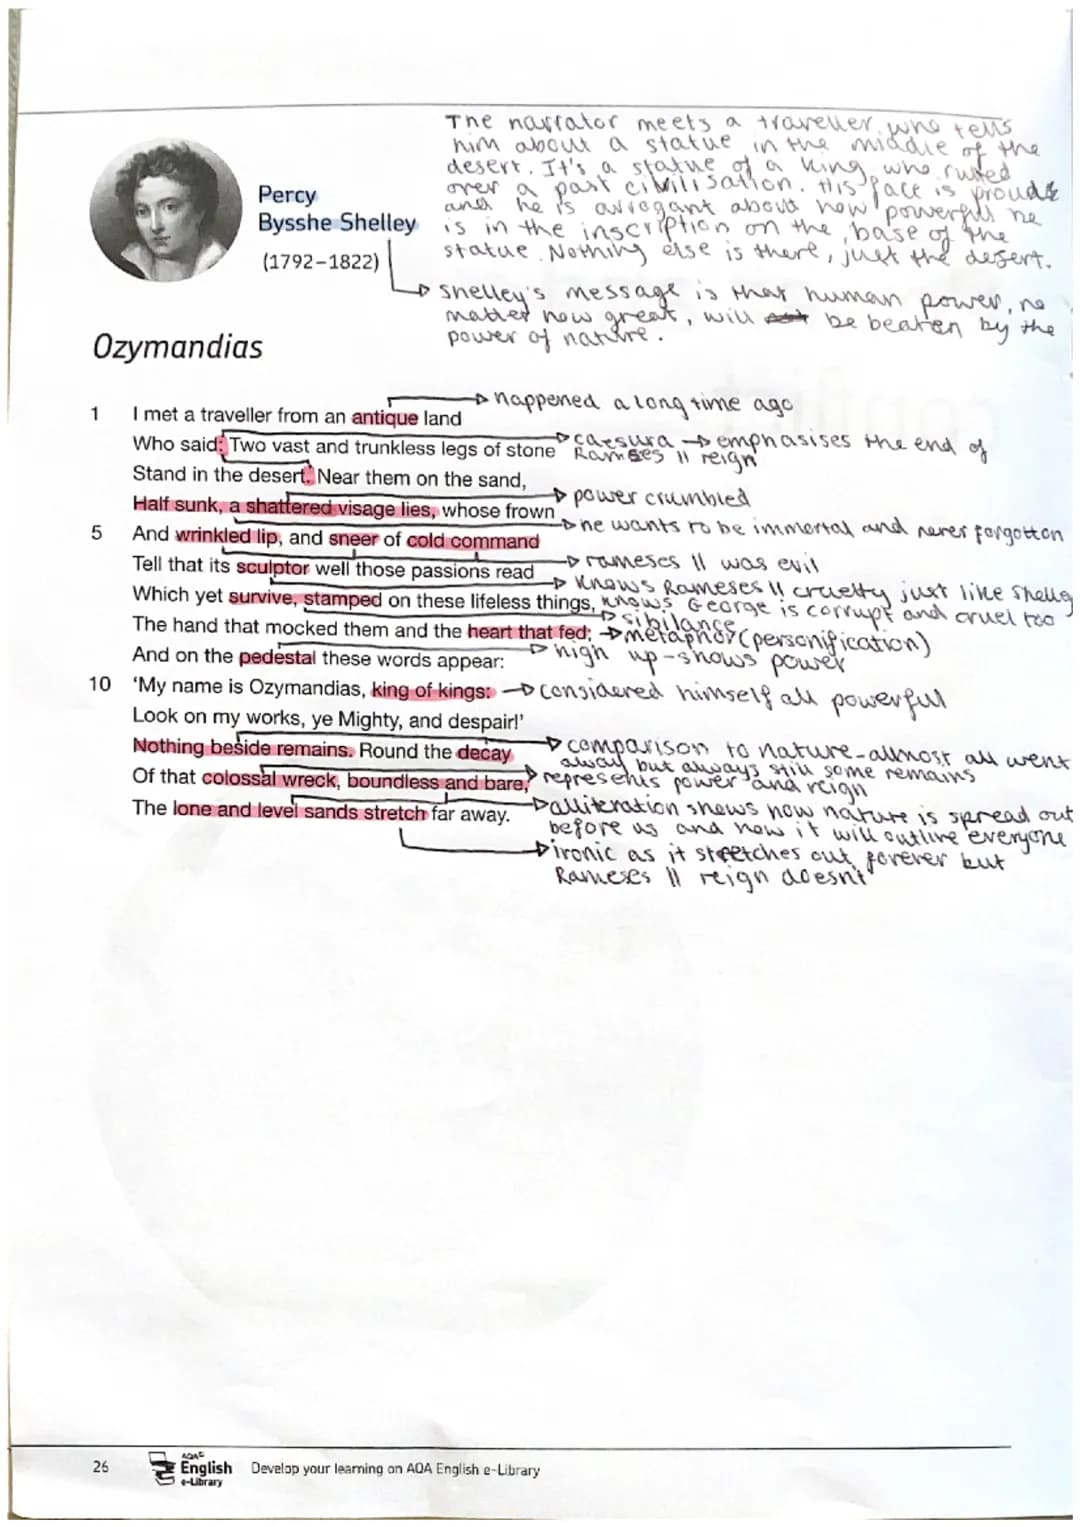 The narrator meets a traveller, who tells
him about a statue in the middle of the
desert. It's a statue of a king who ruled
over a past civilisation. His face is proud &
and he is arrogant about how powerful he
is in the inscription on the base of the
statue. Nothing else is there, just the desert.
Percy
Bysshe Shelley
(1792–1822)
Shelley's message is that human power, no
matter how great, will be beaten by the
power of nature.
Ozymandias
happened a long time ago
1 I met a traveller from an antique land
Who said: Two vast and trunkless legs of stone
caesura → emphasises the end of
Ramses II reign
Stand in the desert. Near them on the sand,
power crumbled
Half sunk, a shattered visage lies, whose frown
he wants to be immortal and never forgotton
5 And wrinkled lip, and sneer of cold command
rameses II was evil
Tell that its sculptor well those passions read
knows Rameses II cruelty just like Shelley
knows George is corrupt and cruel too
Which yet survive, stamped on these lifeless things,
sibilance
The hand that mocked them and the heart that fed;
metaphor (personification)
And on the pedestal these words appear:
high up - shows power
10 ‘My name is Ozymandias, king of kings:
considered himself all powerful
Look on my works, ye Mighty, and despair!’
Nothing beside remains. Round the decay
comparison to nature - almost all went
away but always still some remains
Of that colossal wreck, boundless and bare,
represents power and reign
The lone and level sands stretch far away.
alliteration shows how nature is spread out
before us and how it will outlive everyone
ironic as it stretches out forever but
Rameses II reign doesn't
26
AQA
English
e-Library
Develop your learning on AQA English e-Library